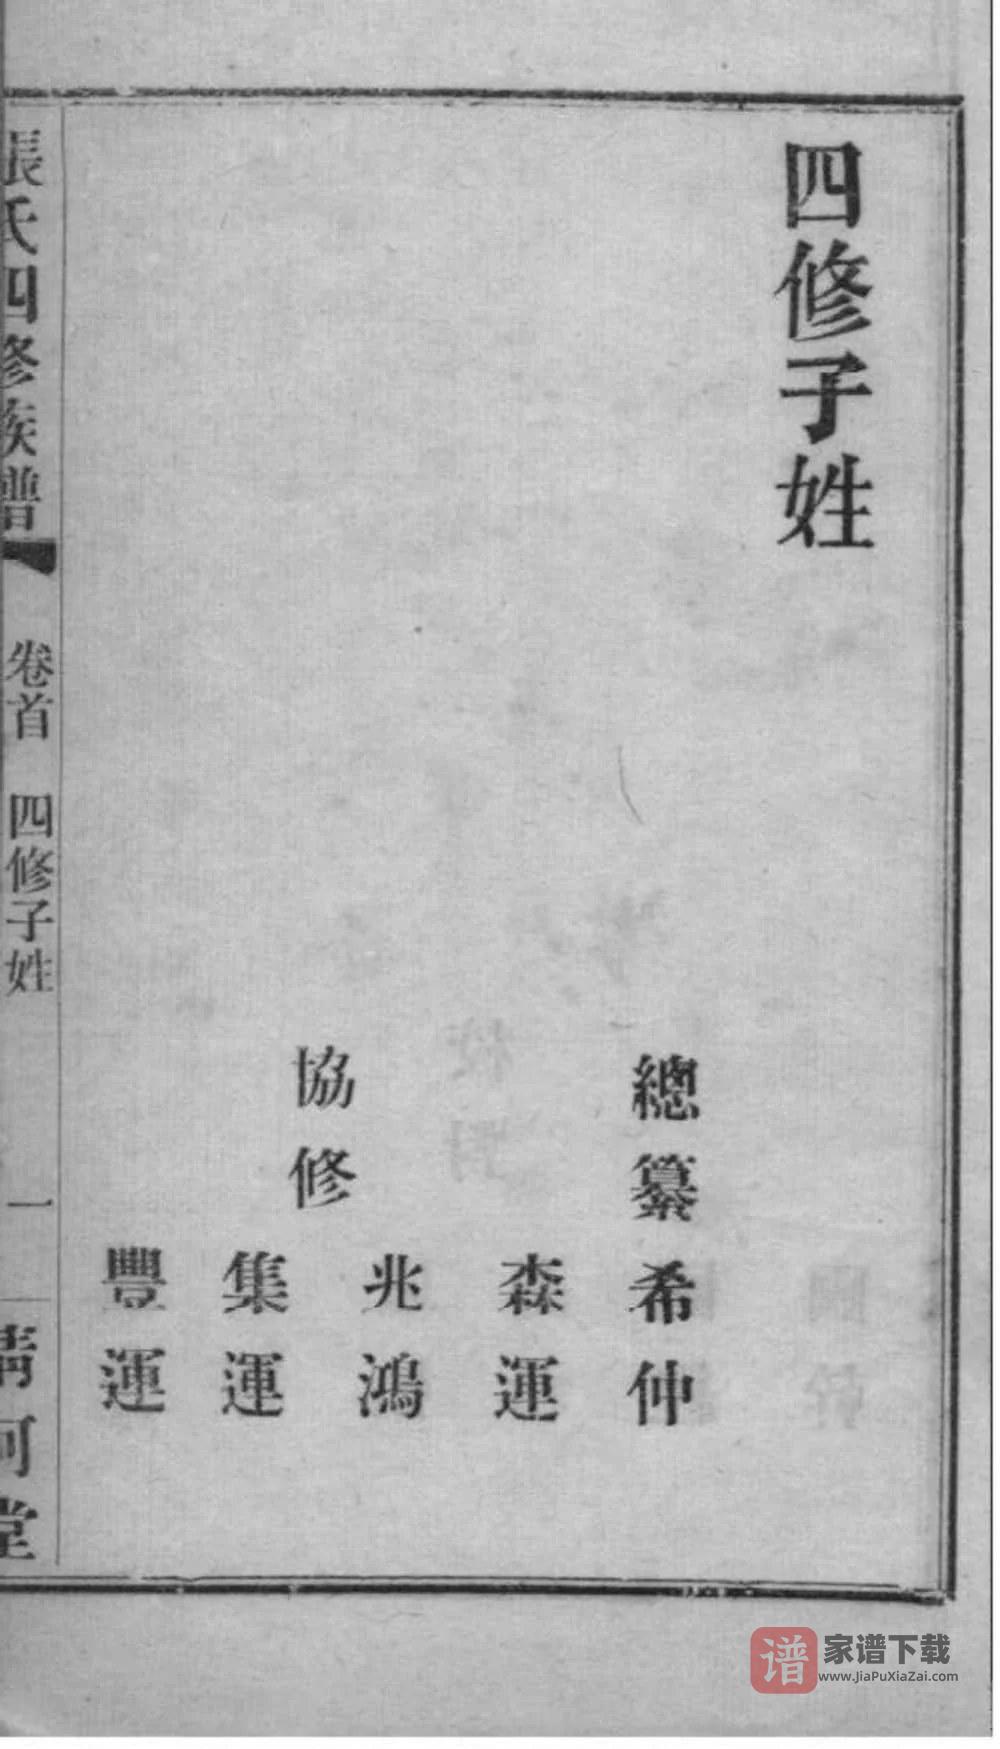 四修子姓
總纂
希仲
森運
協修
兆鴻
集運
豐運
張氏四修族譜
卷首
四修子姓
一
清河堂
谱
家谱下载
www.JiaPuXiaZai.com